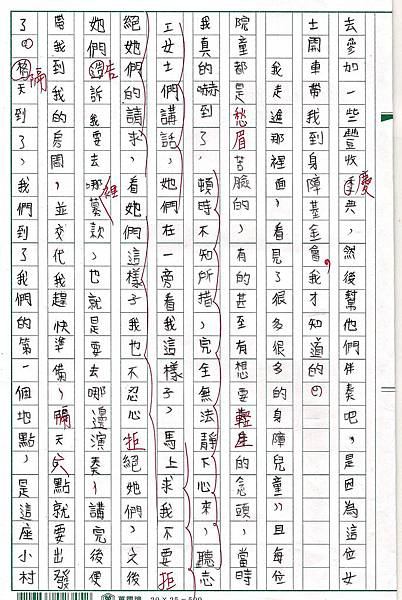 去參加一些豐收慶典,然後幫他們伴奏吧,是因為這位女
士開車帶我到身障基金會,我才知道的。
我走進那裡面,看見了很多很多的身障兒童,且每位
院童都是愁眉苦臉的,有的甚至有想要輕生的念頭,當時
我真的嚇到了,頓時不知所措,完全無法靜下心來,聽志
工女士們講話,她們在一旁看我這樣子,馬上求我不要拒
絕她們的請求,看她們這樣子我也不忍心拒絕她們,之後
她們告訴我要去哪裡募款,也就是要去哪邊演奏,講完後便
帶我到我的房間,並交代我趕快準備,隔天六點就要出發
了。隔天到了,我們到了我們的第一個地點,是這座小村
20×25=500